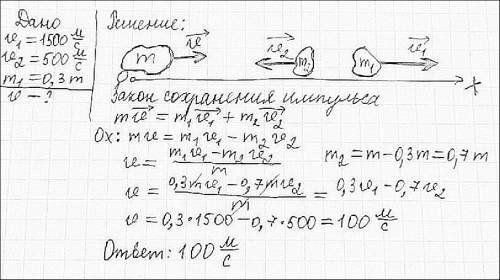 Дано
υ₁ = 1500 м/с
υ₂ = 500 м/с
m₁ = 0,3 m
υ – ?
Решение:
m υ⃗ υ⃗₂ m₂ m₁ υ⃗₁
0 X
Закон сохранения импульса
mυ⃗ = m₁υ⃗₁ + m₂υ⃗₂
Ox: mυ = m₁υ₁ – m₂υ₂
υ = (m₁υ₁ – m₂υ₂)/m m₂ = m – 0,3m = 0,7m
υ = (0,3mυ₁ – 0,7mυ₂)/m = 0,3υ₁ – 0,7υ₂
υ = 0,3•1500 – 0,7•500 = 100 м/с
Ответ: 100 м/с